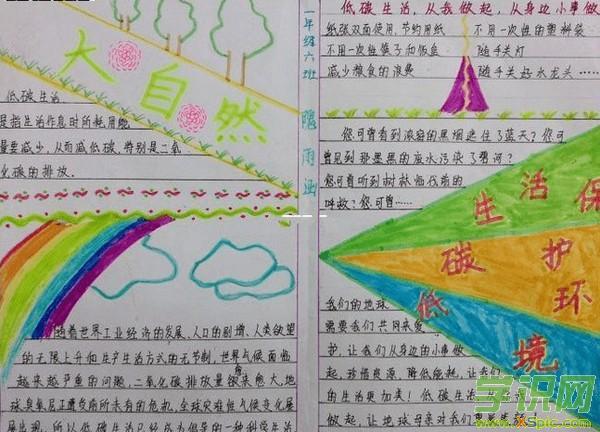 大自然
低碳生活
是指生活作息时所耗用能
量要减少，从而减低碳，特别是二氧
化碳的排放。
随着世界工业经济的发展、人口的剧增、人类欲望
的无限上升和生产生活方式的无节制，世界气候面临
越来越严重的问题，二氧化碳排放量愈来愈大，地
球臭氧层正遭受前所未有的危机，全球灾难性气候变化屡
屡出现，所以低碳生活已经成为倡导的一种科学生活
一年级六班
低碳生活，从我做起，从身边小事做
纸张双面使用，节约用纸
不用一次性的塑料袋
不用一次性筷子和饭盒
随手关灯
减少粮食的浪费
随手关好水龙头……
您可曾看到滚滚的黑烟遮住了蓝天？您可
曾见到那墨黑的废水污染了碧河？
您可曾听到树林临伐前的
呼救？您可曾……
生活保
碳护环
低境
我们的地球
需要我们共同来爱
护，让我们从身边的小事做
起，珍惜资源、降低能耗，让我们
的生活更加美！低碳生活
做起，让地球母亲对我们
学识网
www.XSpic.com